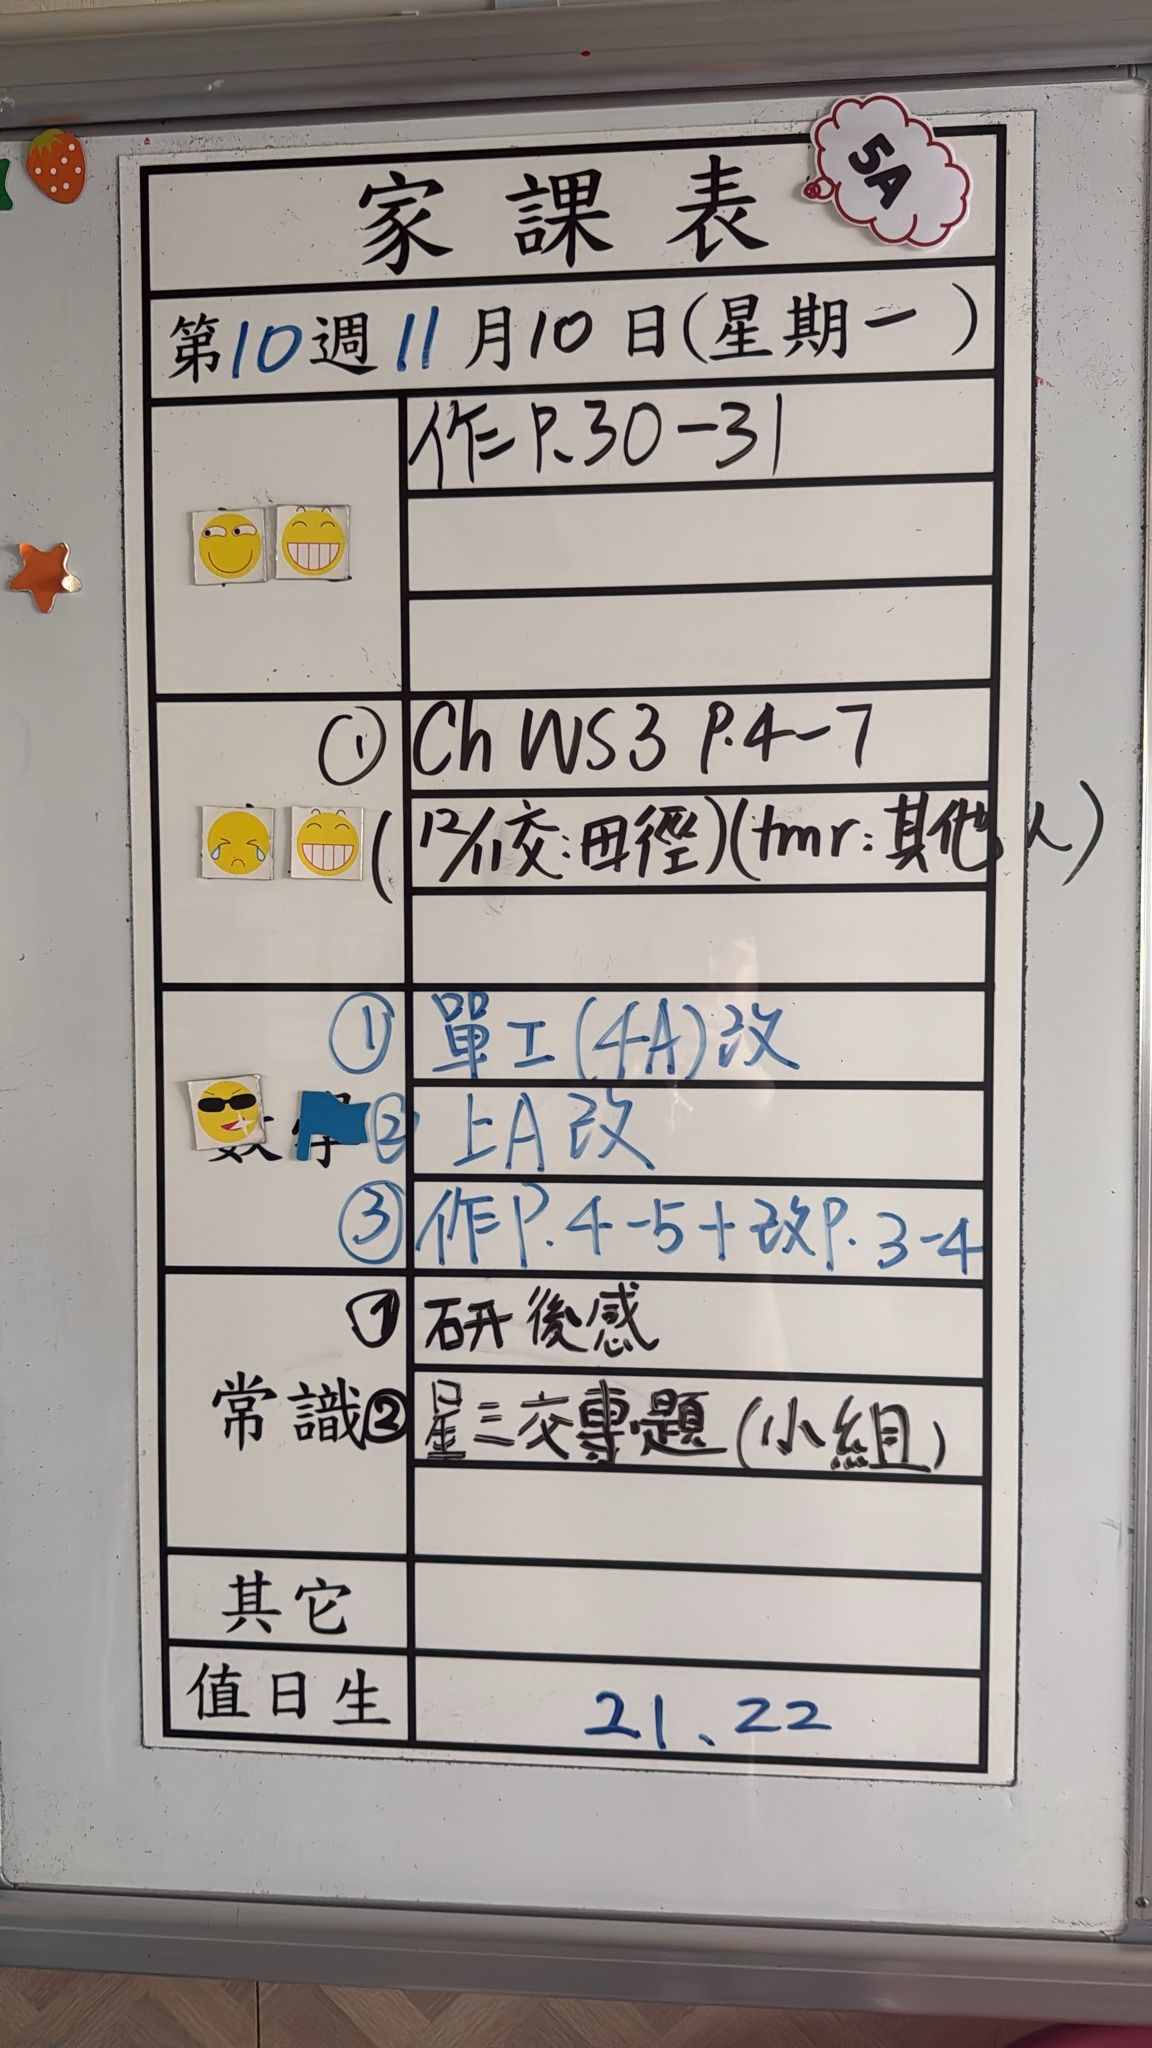 5A
家課表
第10週11月10日(星期一)
作P.30-31
① Ch WS3 P.4-7
(12/11交:田徑)(tmr:其他人)
① 單工(4A)改
數學② 上A改
③ 作P.4-5+改P.3-4
① 研後感
常識② 星三交專題(小組)
其它
值日生 21、22